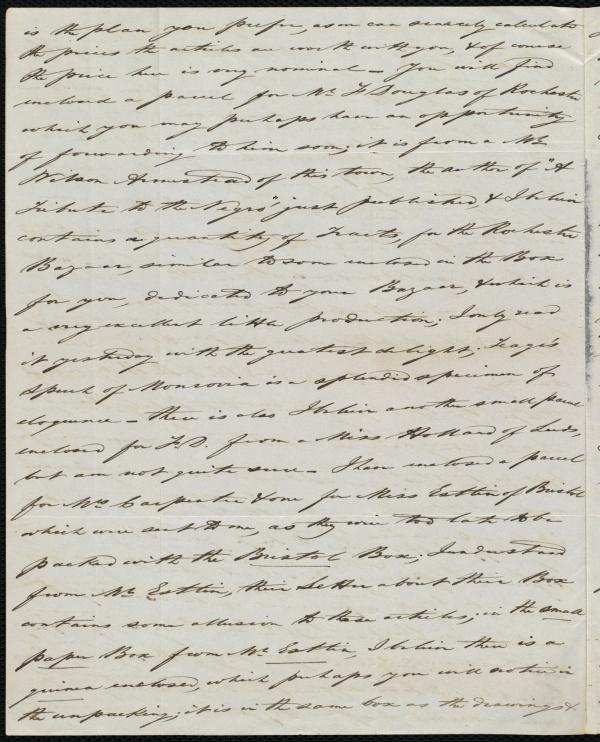 is the plan you prefer, as we can scarcely calculate
the prices the articles are worth with you, & of course
the price here is very nominal – You will find
enclosed a parcel for Mr. F Douglas of Rochester
which you may perhaps have an opportunity
of forwarding to him soon; it is from a Mr.
Wilson Armistead of this town, the author of "A
Tribute to the Negro" just published & I believe
contains a quantity of Tracts, for the Rochester
Bazaar, similar to some enclosed in the Box
for you, dedicated to your Bazaar, & which is
a very excellent little production; I only read
it yesterday with the greatest delight;
speech of Monrovia is a splendid specimen of
eloquence – there is also I believe another small parcel
enclosed for F.D. from a Miss Holland of Leeds,
but am not quite sure – I have enclosed a parcel
for Mrs. Carpenter & one for Miss Estlin of Bristol
which were sent to me, as they were too late to be
packed with the Bristol Box, I understand
from Mr. Estlin, their Letter about their Box
contains some allusion to these articles; in the small
paper Box from Mr. Estlin, I believe there is a
guinea enclosed, which perhaps you will notice in
the unpacking; it is in the same box as the drawings &